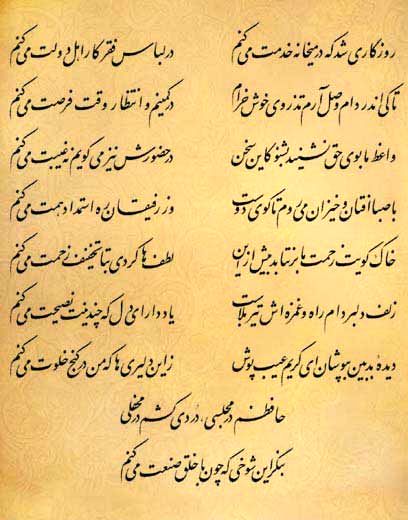 روزگاری شد که در میخانه خدمت می‌کنم در لباس فقر کار اهل دولت می‌کنم
تا کی اندر دام وصل آرم تذروی خوش خرام در کمینم و انتظار وقت فرصت می‌کنم
واعظ ما بوی حق نشنید بشنو کاین سخن در حضورش نیز می‌گویم نه غیبت می‌کنم
با صبا افتان و خیزان می‌روم تا کوی دوست وز رفیقان ره استمداد همت می‌کنم
خاک کویت زحمت ما برنتابد بیش ازاین لطف‌ها کردی بتا تخفیف زحمت می‌کنم
زلف دلبر دام راه و غمزه‌اش تیر بلاست یاد دار ای دل که چندینت نصیحت می‌کنم
دیدهٔ بدبین بپوشان ای کریم عیب پوش زین دلیری‌ها که من در کنج خلوت می‌کنم
حافظم در مجلسی، دردی کشم در محفلی
بنگر این شوخی که چون با خلق صنعت می‌کنم